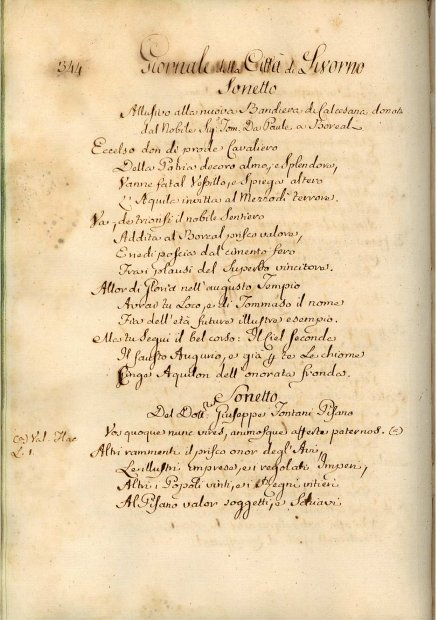 344
Giornale della Città di Livorno
Sonetto
Allusivo alla nuova Bandiera di Calcesana donata
dal Nobile Sig. Tom. Da Paule a Boreal
Eccelso don di prode Cavaliero
Della Patria decoro almo, e splendore,
Vanne fatal Vessillo, e spiega altero
L'Aquila invitta al Mezzodì terrore.
Va, de trionfi il nobile Sentiero
Addita al Boreal prisco valore,
E riedi poscia dal cimento fero
Fra i plausi del Superbo vincitore.
Allor di Gloria nell'augusto Tempio
Avrai tu Loco, e di Tommaso il nome
Fia dell'età future illustre esempio.
Ma tu Segui il bel corso: Il Ciel Seconda
Il fausto Augurio, e già p te Le chiome
Cinge Aquilon dell'onorata fronda.
Sonetto
Del Dott. Giuseppe Fontani Pisano
Vos quoque nunc vires, animosque afferte paternos. (a)
(a) Val. Flac
Li. 1.
Altri rammenti il prisco onor degl'Avi,
Le illustri Imprese, e i regolati Imperi,
Altri i Popoli vinti, e i Regni intieri
Al Pisano valor soggetti, e Schiavi